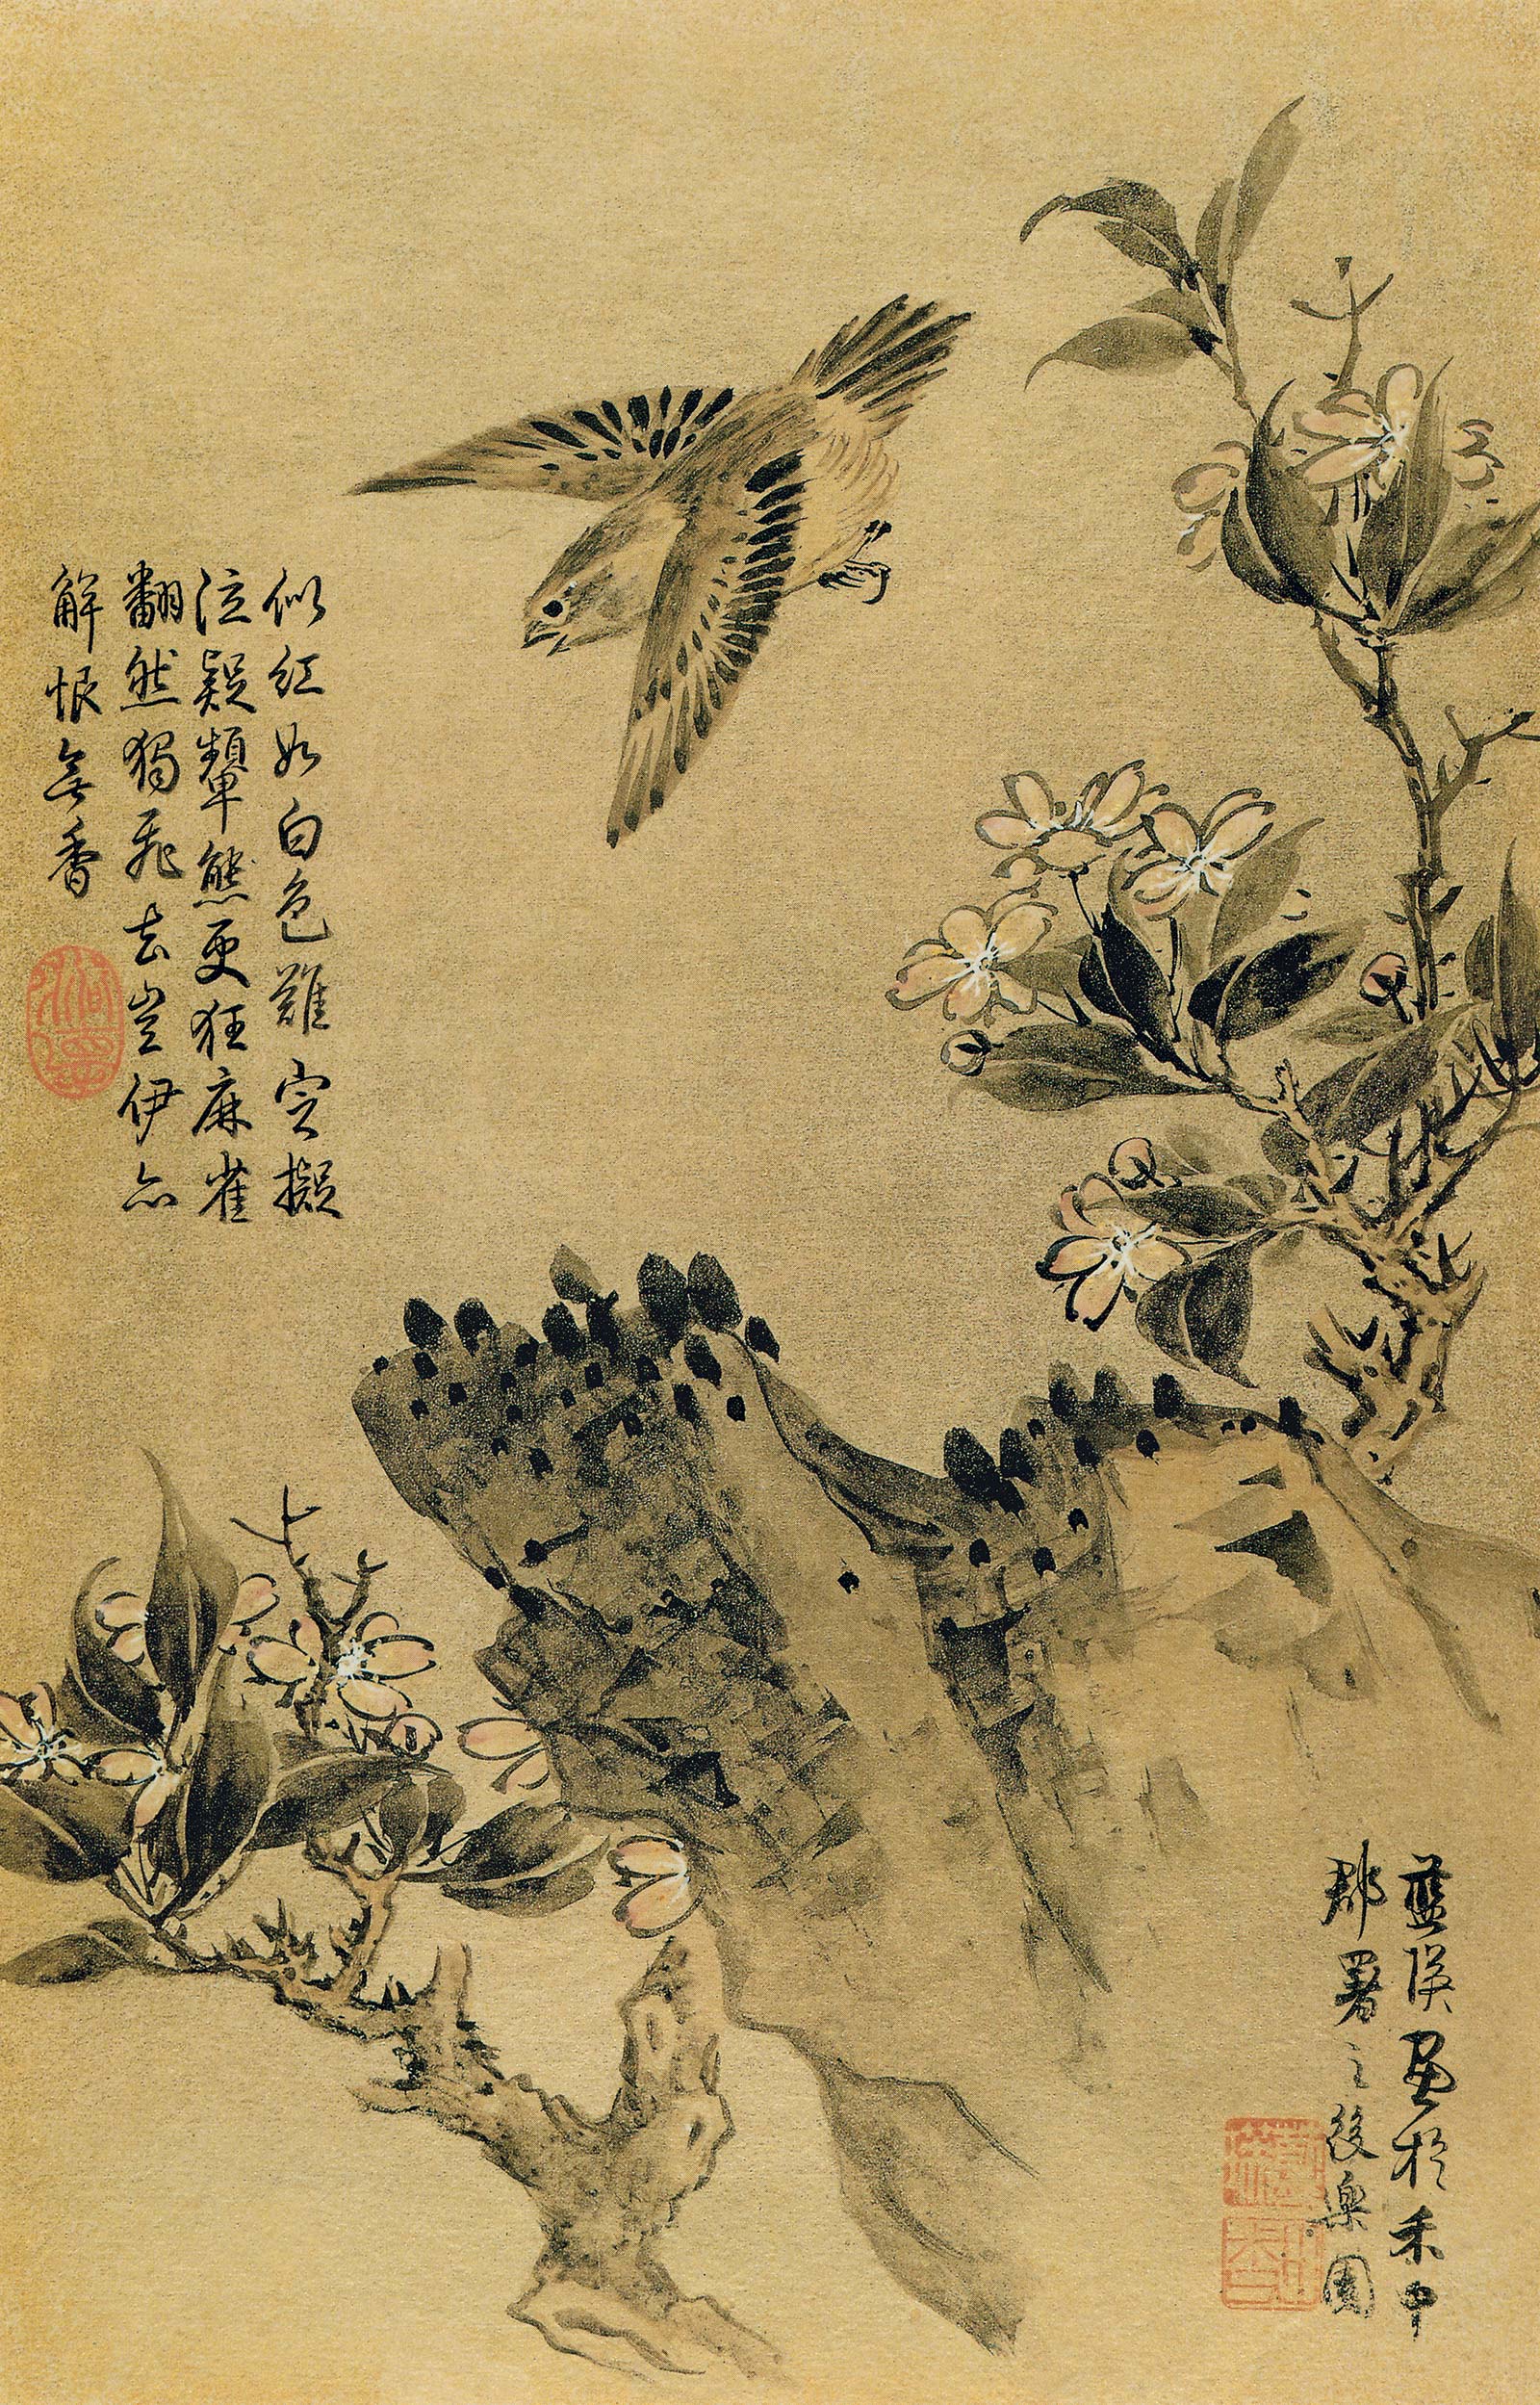 似红如白色難定擬
泣疑顰態更狂麻雀
翻然獨飛去豈伊亦
解恨無香
藍瑛畫於禾中
郡署之後樂園